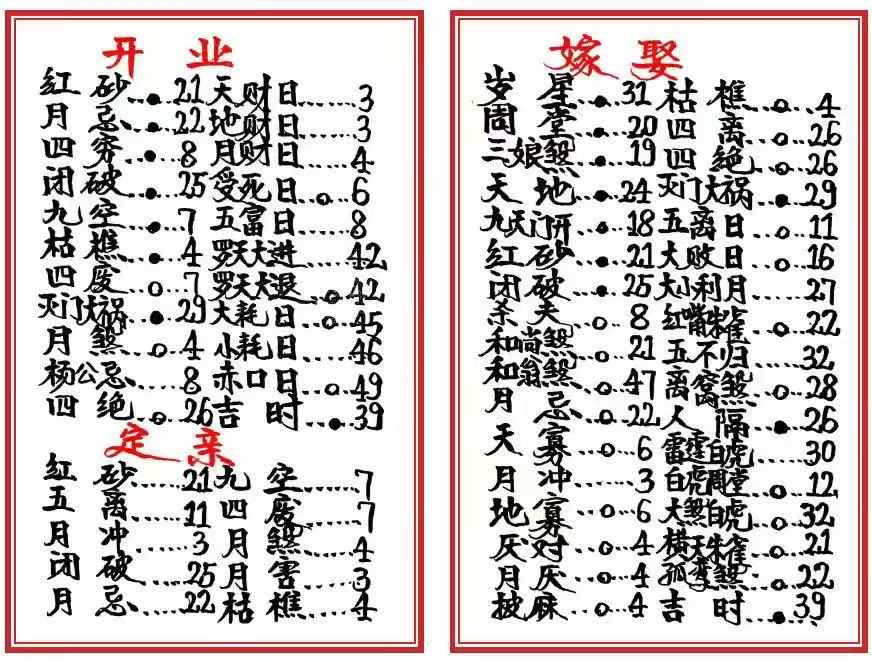 开业
红砂……21 天财日……3
月忌……22 地财日……3
四穷……8 月财日……4
闭破……25 受死日……6
九空……7 五富日……8
枯樵……4 罗天大进……42
四废……7 罗天大退……42
灭门大祸……29 大耗日……45
月煞……4 小耗日……46
杨公忌……8 赤口日……49
四绝……26 吉时……39
定亲
红砂……21 九空……7
五离……11 四废……7
月冲……3 月煞……4
闭破……25 月害……3
月忌……22 枯樵……4
嫁娶
岁星……31 枯樵……4
周堂……20 四离……26
三娘煞……19 四绝……26
天地……24 灭门大祸……29
九天门开……18 五离日……11
红砂……21 大败日……16
闭破……25 大小利月……27
杀夫……8 红嘴……22
和尚煞……21 五不归……32
和翁煞……47 离窝煞……28
月忌……22 人隔……26
天寡……6 雷霆白虎……30
月冲……3 白虎周堂……12
地寡……6 大煞白虎……32
厌对……4 横天……21
月厌……4 孤鸾煞……22
披麻……4 吉时……39